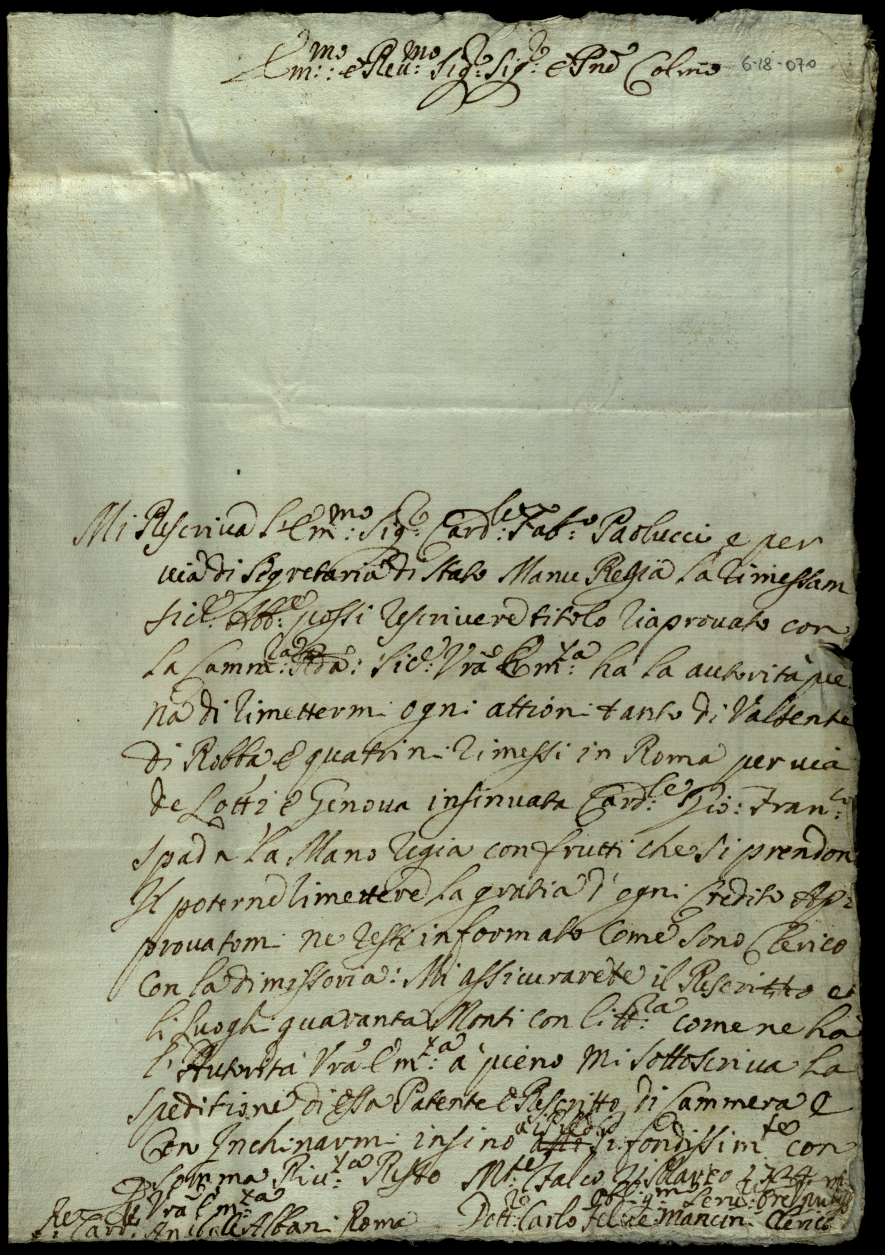 Em:mo e Reu:mo Sig:re Sig:re e Pne Colmo 6-18-070
Mi Rescriva l'Em:mo Sig:e Card:le Fab:o Paolucci e per
via di Segretaria di Stato Manu Regia la rimessam
Sic:e possi rescrivere titolo riaprovato con
la Camm:ra Sic:e Vra Em:za ha la autorita pie
na di rimetterm ogni attioni tanto di Valsente
di Robba e quatrini rimessi in Roma per via
de Lotti e Genova insinuata Card:le Gio: Fran:co
Spada la Mano regia con frutti che si prendon
Il poterne rimettere la gratia d'ogni Credito Ap:
provatomi ne resti informato Come sono Clerico
Con la dimissoria: Mi assicurarete il Rescritto e
li luoghi quaranta Monti con come ne ha
l'Autorita Vra Em:za a pieno Mi sottoscriva la
speditione di essa Patente e Rescritto di Cammera e
Con Inchinarmi insino con
somma Riu:za Resto M:te Falco Marzo
Di Vra Em:za
Card: Anibale Albani Roma Dott:re Carlo Felice Mancini Clerico